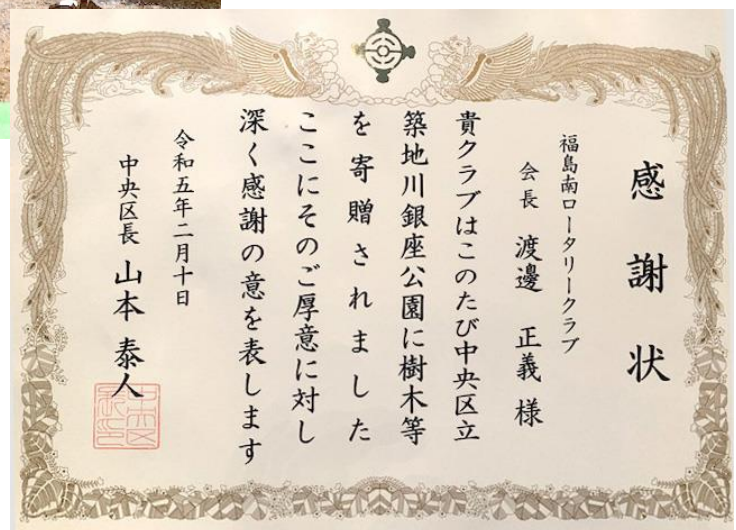 感謝状
福島南ロータリークラブ
会長 渡邊 正義 様
貴クラブはこのたび中央区立
築地川銀座公園に樹木等
を寄贈されました
ここにそのご厚意に対し
深く感謝の意を表します
令和五年二月十日
中央区長 山本 泰人